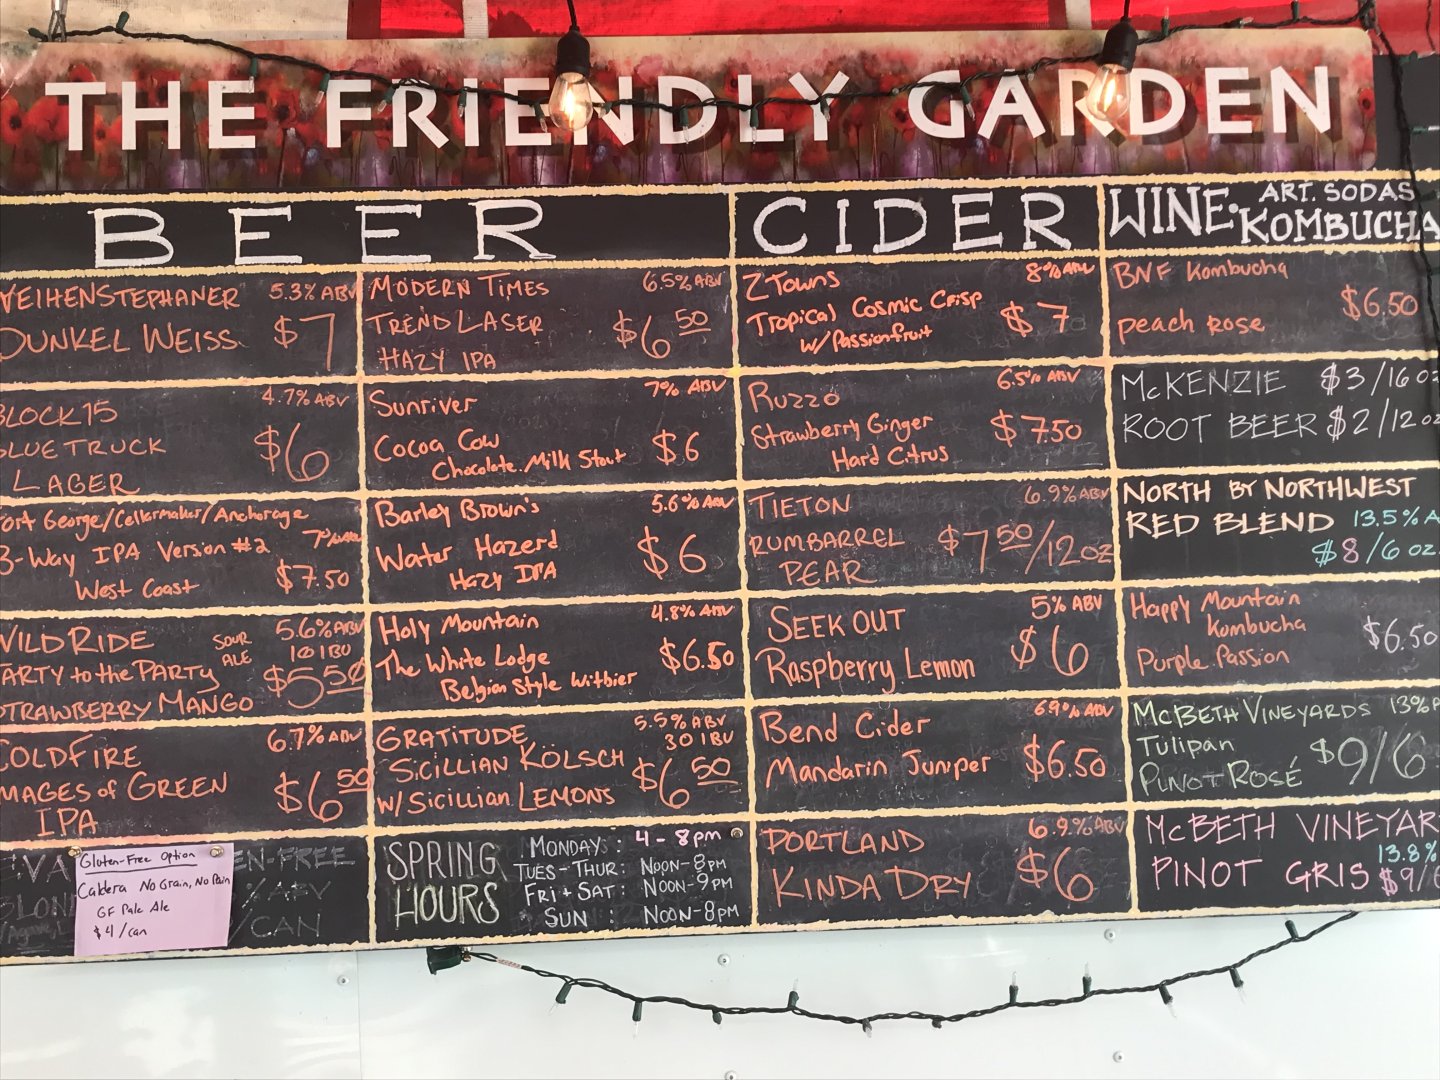 THE FRIENDLY GARDEN
BEER
WEIHENSTEPHANER 5.3% ABV
DUNKEL WEISS $7
BLOCK 15 4.7% ABV
BLUE TRUCK $6
LAGER
Fort George/Cellarmaker/Anchorage
3-Way IPA Version #2 7% ABV
West Coast $7.50
WILD RIDE SOUR ALE 5.6% ABV
10 IBU
PARTY to the PARTY $5.50
STRAWBERRY MANGO
COLDFIRE 6.7% ABV
IMAGES of GREEN $6.50
IPA
Gluten-Free Option
Caldera No Grain, No Pain
GF Pale Ale
$4/can
EN-FREE
% ABV
/CAN
MODERN TIMES 6.5% ABV
TREND LASER $6.50
HAZY IPA
Sunriver 7% ABV
Cocoa Cow $6
Chocolate Milk Stout
Barley Brown's 5.6% ABV
Water Hazerd $6
Hazy IPA
Holy Mountain 4.8% ABV
The White Lodge $6.50
Belgian Style Witbier
GRATITUDE 5.5% ABV
30 IBU
SICILLIAN KÖLSCH $6.50
W/ SICILLIAN LEMONS
SPRING HOURS
MONDAYS: 4-8pm
TUES-THUR: NOON-8PM
FRI + SAT: NOON-9PM
SUN : NOON-8PM
CIDER
2 Towns 8% ABV
Tropical Cosmic Crisp $7
w/ Passionfruit
Ruzzo 6.5% ABV
Strawberry Ginger $7.50
Hard Citrus
TIETON 6.9% ABV
RUMBARREL $7.50/12oz
PEAR
SEEK OUT 5% ABV
Raspberry Lemon $6
Bend Cider 6.9% ABV
Mandarin Juniper $6.50
PORTLAND 6.9% ABV
KINDA DRY $6
WINE. ART. SODAS
KOMBUCHA
BNF Kombucha
$6.50
peach rose
McKENZIE $3/16 oz
ROOT BEER $2/12 oz
NORTH BY NORTHWEST
RED BLEND 13.5% A
$8/6 oz.
Happy Mountain
Kombucha $6.50
Purple Passion
McBETH VINEYARDS 13% A
Tulipan $9/6
PINOT ROSÉ
McBETH VINEYAR
13.8%
PINOT GRIS $9/6